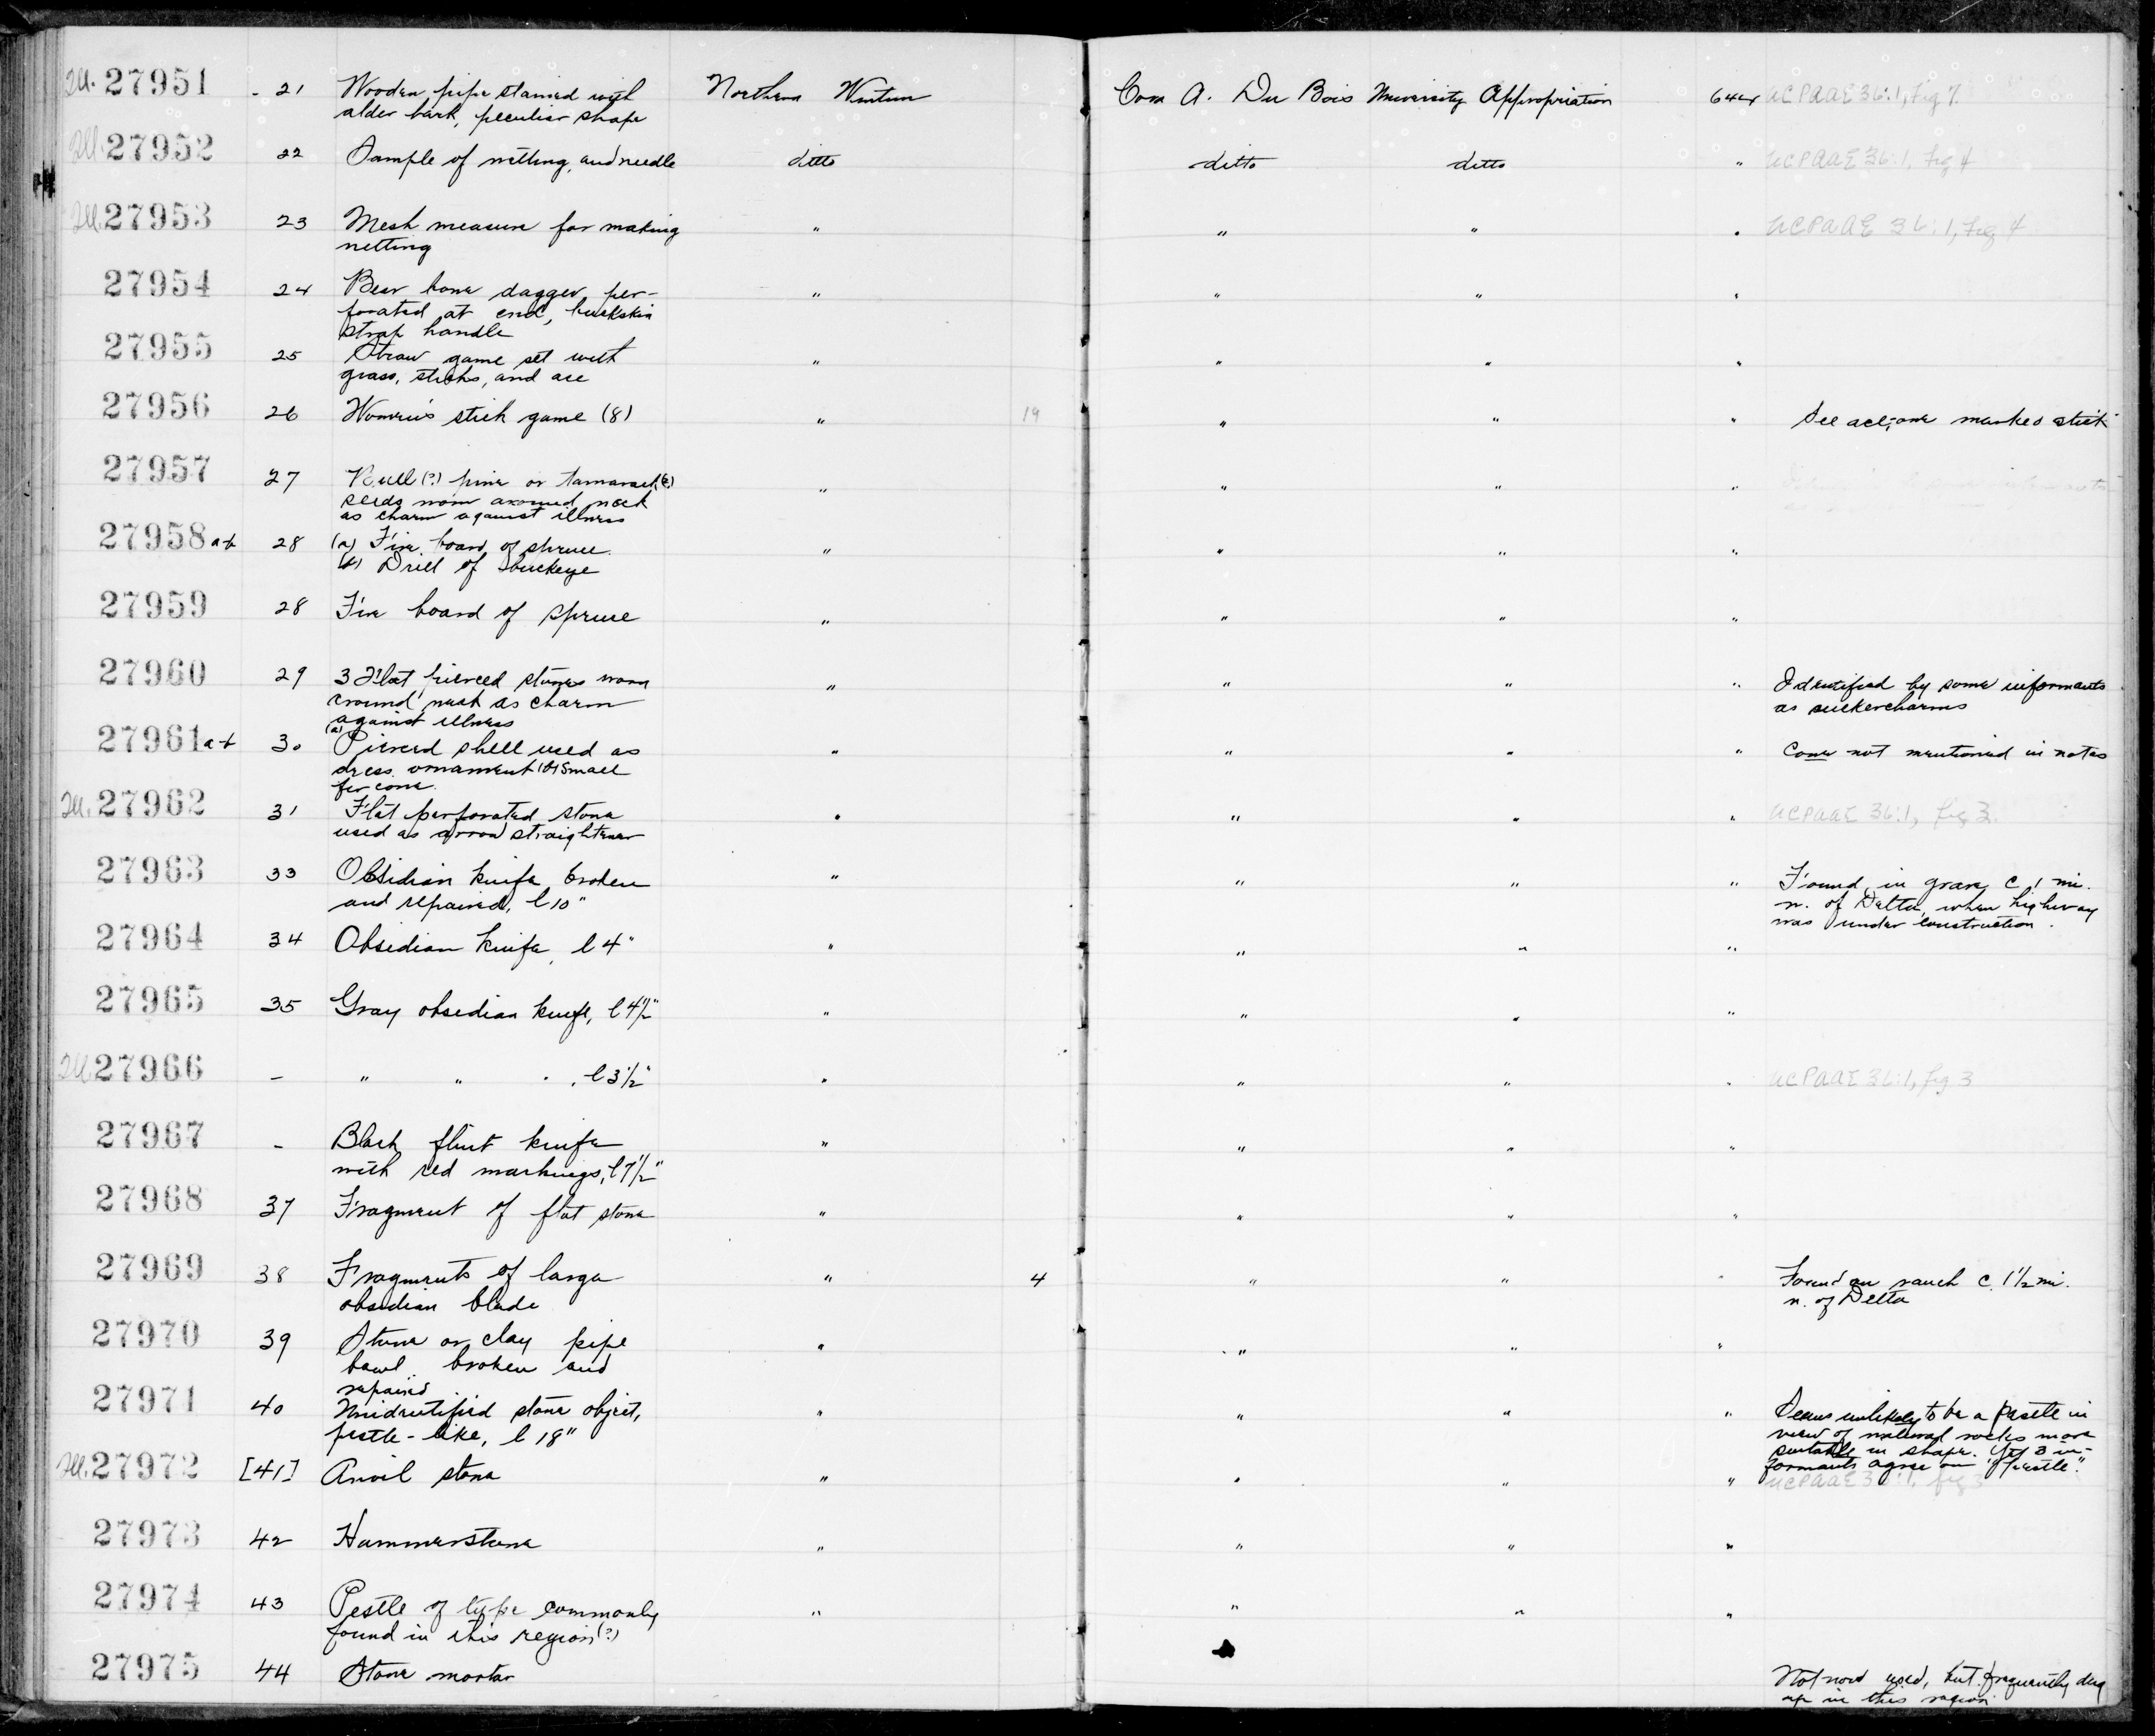 Ill. 27951 - 21 Wooden pipe stained with Northern Wintun Cora A. Du Bois University Appropriation 644 UCPAAE 36:1, Fig 7
alder bark, peculiar shape
Ill. 27952 22 Sample of netting, and needle ditto ditto ditto " UCPAAE 36:1, Fig 4
Ill. 27953 23 Mesh measure for making " " " " UCPAAE 36:1, Fig 4
netting
27954 24 Bear bone dagger, per- " " " "
forated at end, buckskin
strap handle
27955 25 Straw game set with " " " "
grass, sticks, and ace
27956 26 Women's stick game (8) " 19 " " " See acc; one marked stick
27957 27 Bull(?) pine or tamarack(?) " " " "
seeds worn around neck
as charm against illness
27958 a+b 28 (a) Fire board of spruce " " " "
(b) Drill of buckeye
27959 28 Fire board of spruce " " " "
27960 29 3 Flat, pierced stones worn " " " " Identified by some informants
around neck as charm as suckercharms
against illness
27961 a+b 30 (a) Pierced shell used as " " " " Cone not mentioned in notes
dress ornament (b) Small
fir cone
Ill. 27962 31 Flat perforated stone " " " " UCPAAE 36:1, fig 3
used as arrow straightener
27963 33 Obsidian knife, broken " " " " Found in grave c 1 mi.
and repaired, l 10" n. of Delta, when highway
was under construction.
27964 34 Obsidian knife, l 4" " " " "
27965 35 Gray obsidian knife, l 4½" " " " "
Ill. 27966 - " " " , l 3½" " " " " UCPAAE 36:1, fig 3
27967 - Black flint knife " " " "
with red markings, l 7½"
27968 37 Fragment of flat stone " " " "
27969 38 Fragments of large " 4 " " " Found on ranch c. 1½ mi.
obsidian blade n. of Delta
27970 39 Stone or clay pipe " " " "
bowl, broken and
repaired
27971 40 Unidentified stone object, " " " " Seems unlikely to be a pestle in
pestle-like, l 18" view of natural rocks more
suitable in shape. Yet 3 in-
formants agree on "pestle."
Ill. 27972 [41] Anvil stone " " " " UCPAAE 36:1, fig 3
27973 42 Hammerstone " " " "
27974 43 Pestle of type commonly " " " "
found in this region (?)
27975 44 Stone mortar Not now used, but frequently dug
up in this region